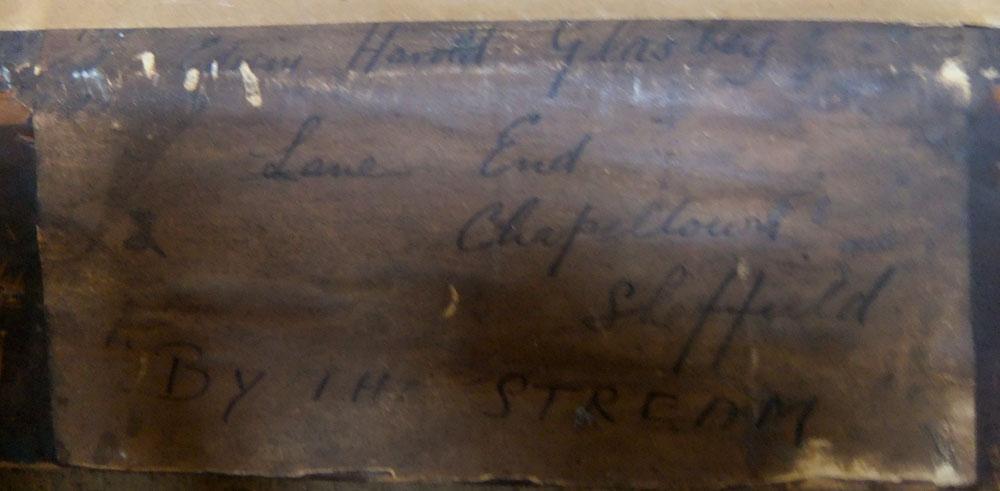 Edwin Harold Glasberg
Lane End
Chapeltown
Sheffield
BY THE STREAM